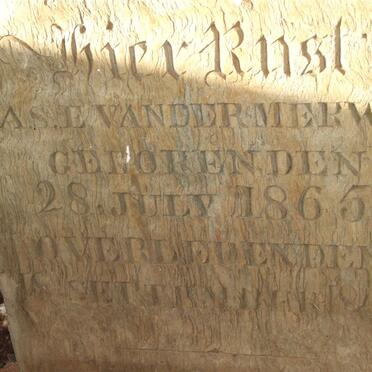 Hier Rust
A S. E. VAN DER MERW
GEBOREN DEN
28. JULY 1865
OVERLEDEN DEN